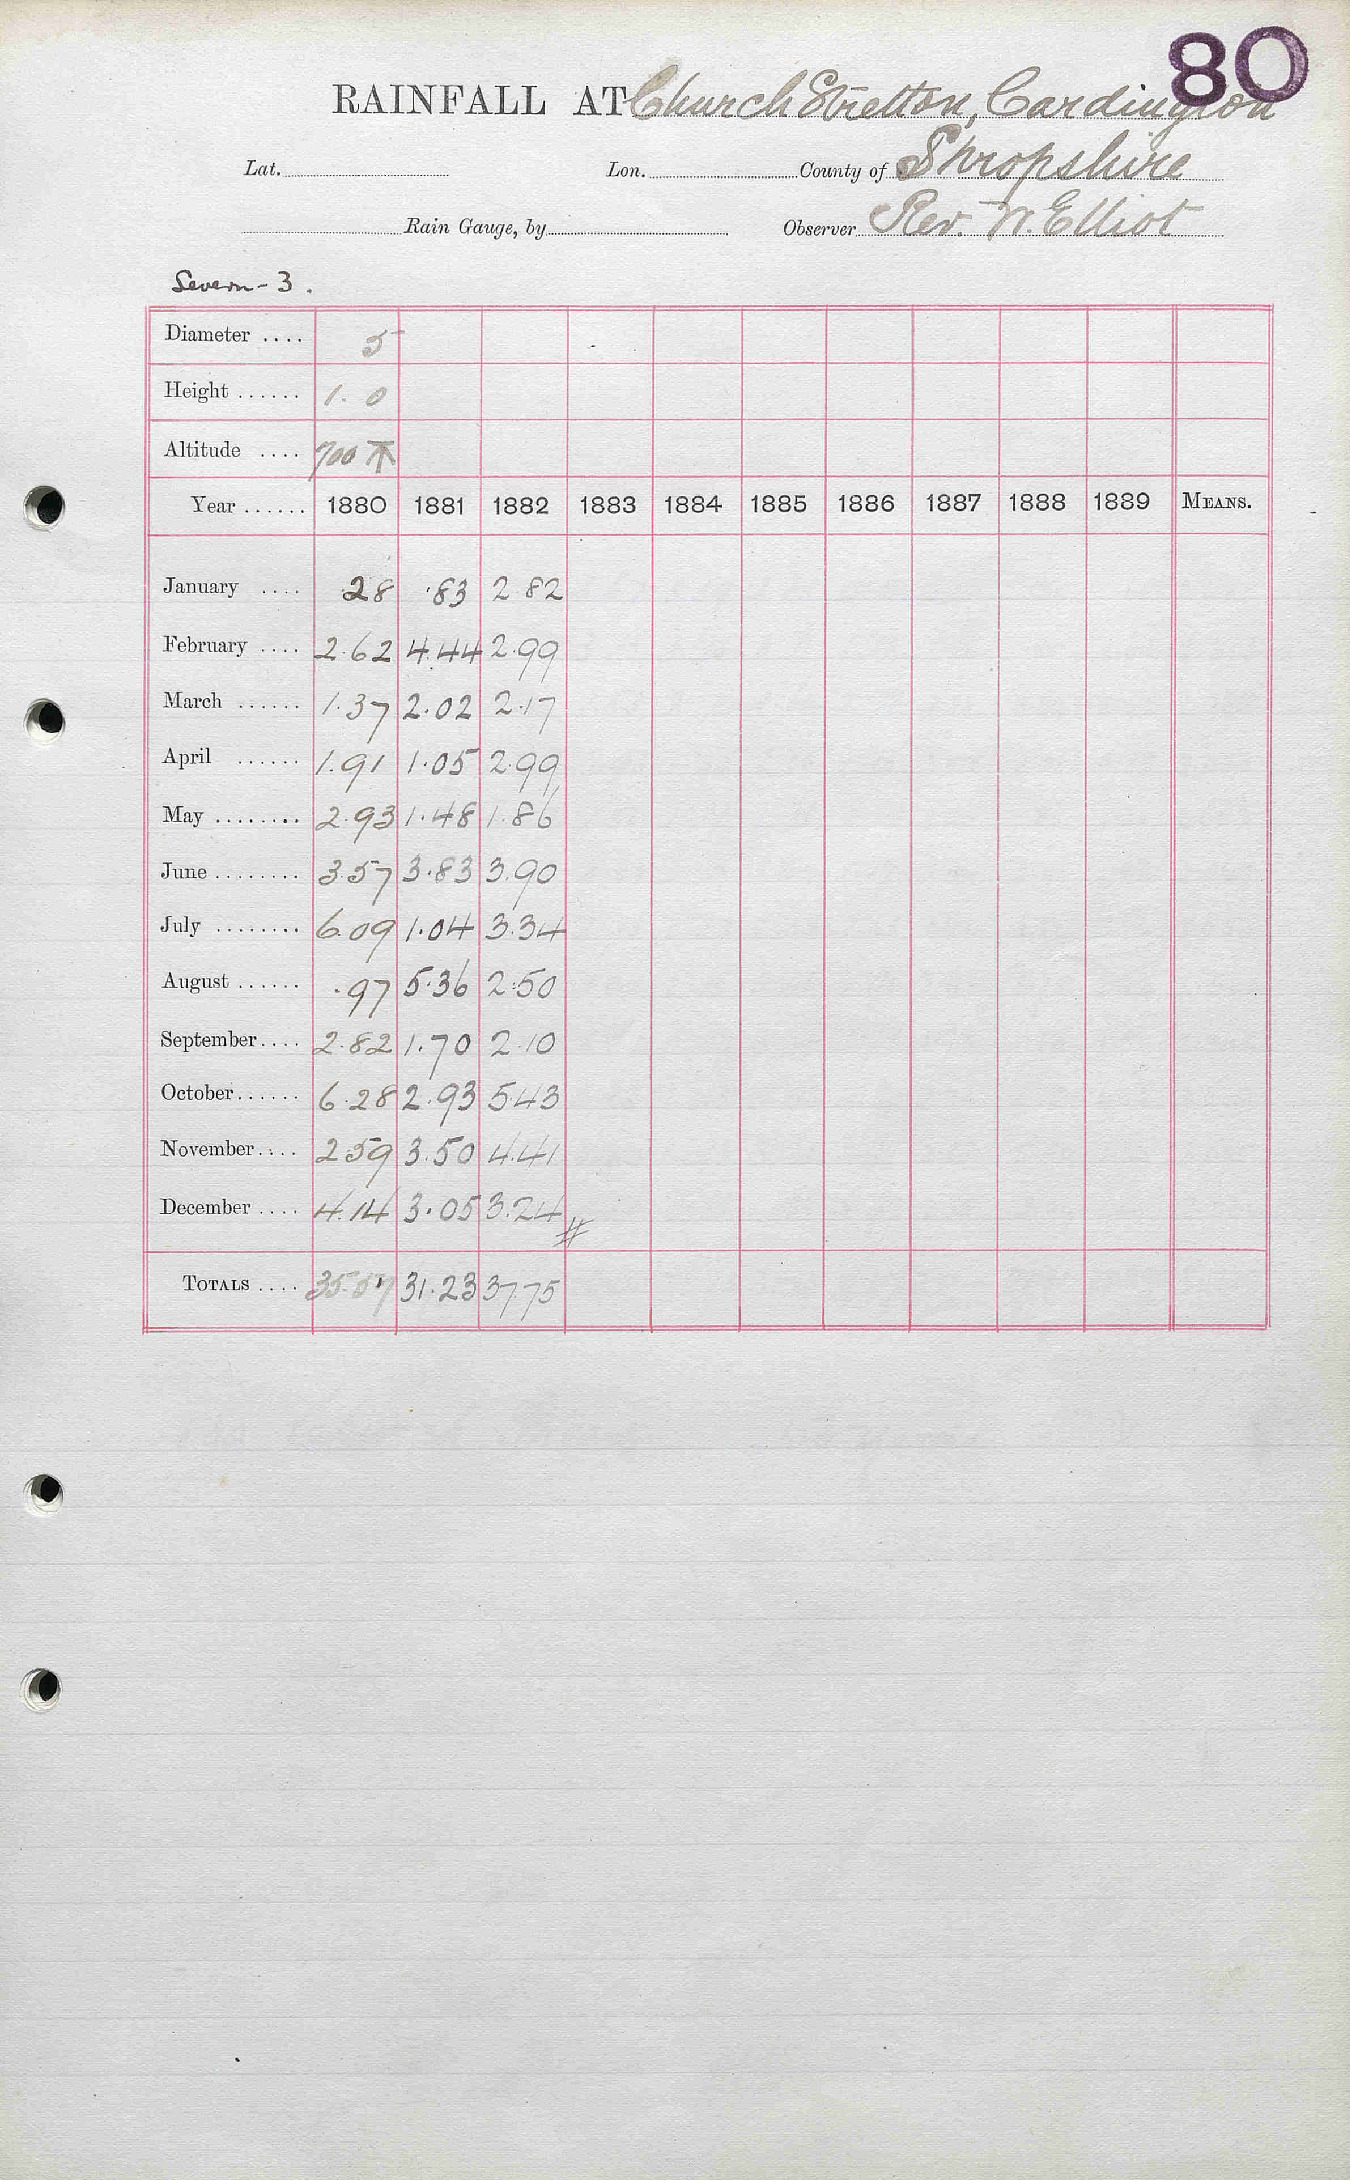 80
RAINFALL AT Church Stretton, Cardington
Lat. Lon. County of Shropshire
Rain Gauge, by Observer Rev. W. Elliot
Severn - 3.
Diameter .... 5
Height ...... 1. 0
Altitude .... 700
Year ...... 1880 1881 1882 1883 1884 1885 1886 1887 1888 1889 MEANS.
January .... .28 .83 2 82
February .... 2.62 4.44 2.99
March ...... 1.37 2.02 2.17
April ...... 1.91 1.05 2.99
May ........ 2.93 1.48 1.86
June ........ 3.57 3.83 3.90
July ........ 6.09 1.04 3.34
August ...... .97 5.36 2.50
September .... 2.82 1.70 2.10
October ...... 6.28 2.93 5.43
November .... 2.59 3.50 4.41
December .... 4.14 3.05 3.24 #
TOTALS .... 35.57 31.23 37.75